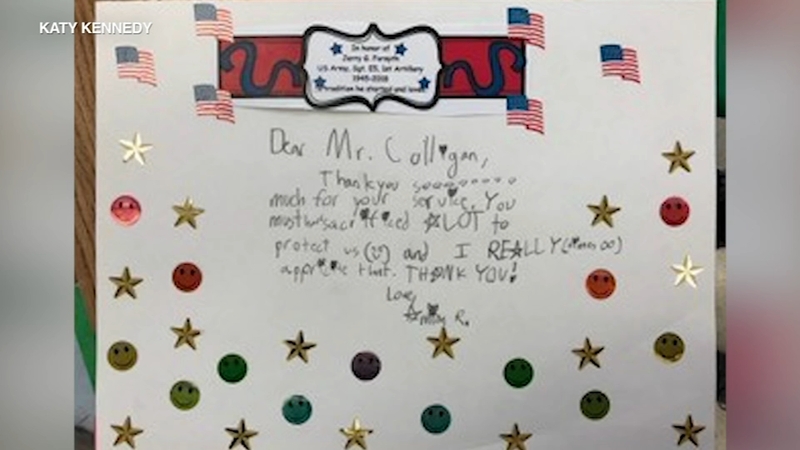 KATY KENNEDY
In honor of
Jerry G. Forsyth
US Army, Sgt. E5, 1st Artillery
1945-2018
A tradition he started and loved
Dear Mr. Colligan,
Thank you soooooooo
much for your service. You
must sacrificed A LOT to
protect us (☺) and I REALLY (times ∞)
that. THANK YOU!
Love,
R.